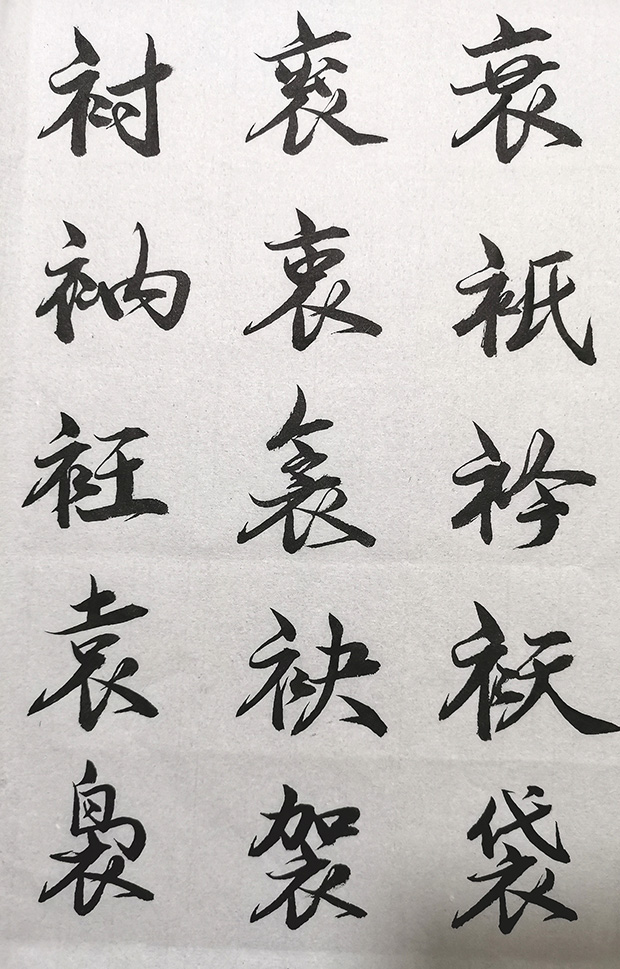 衬衮衰
衲衷衹
衽衾衿
袁袂袄
裊袈袋